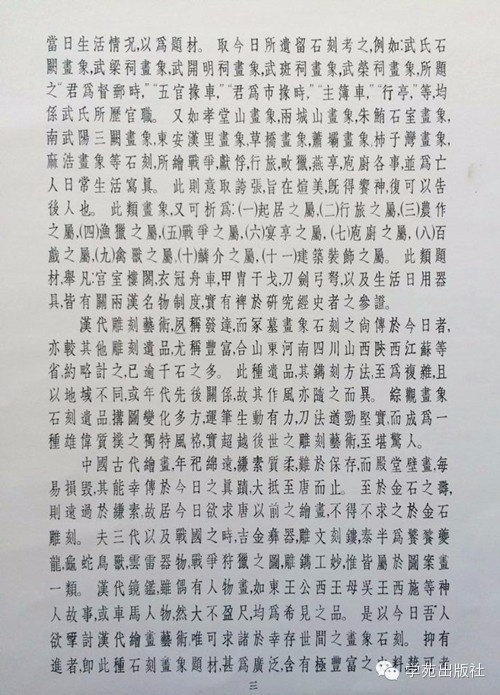 當日生活情况,以爲題材。 取今日所遺留石刻考之,例如:武氏石
闕畫象,武梁祠畫象,武開明祠畫象,武班祠畫象,武榮祠畫象,所題
之"君爲督郵時,""五官掾車,""君爲市掾時,""主簿車,""行亭,"等,均
係武氏所歷官職。 又如孝堂山畫象,兩城山畫象,朱鮪石室畫象,
南武陽三闕畫象,東安漢里畫象,草橋畫象,蕭壩畫象,柿子灣畫象,
麻浩畫象等石刻,所繪戰爭,獻俘,行旅,畋獵,燕享,庖廚各事,並爲亡
人日常生活寫眞。 此則意取誇張,旨在煊美,旣得饗神,復可以告
後人也。 此類畫象,又可析爲:(一)起居之屬,(二)行旅之屬,(三)農作
之屬,(四)漁獵之屬,(五)戰爭之屬,(六)宴享之屬,(七)庖廚之屬,(八)百
戲之屬,(九)禽獸之屬,(十)鱗介之屬,(十一)建築裝飾之屬。 此類題
材,舉凡:宮室樓閣,衣冠舟車,甲冑干戈,刀劍弓弩,以及生活日用器
具,皆有關兩漢名物制度,實有裨於研究經史者之參證。
漢代雕刻藝術,夙稱發達,而冢墓畫象石刻之尙傳於今日者,
亦較其他雕刻遺品,尤稱豐富,合山東河南四川山西陝西江蘇等
省,約略計之,已逾千石之多。 此種遺品,其鐫刻方法,至爲複雜,且
以地域不同,或年代先後關係,故其作風亦隨之而異。 綜觀畫象
石刻遺品,搆圖變化多方,運筆生動有力,刀法遒勁堅實,而成爲一
種雄偉質撲之獨特風格,實超越後世之雕刻藝術,至堪驚人。
中國古代繪畫,年祀綿遠,縑素質柔,難於保存,而殿堂壁畫,每
易損毀,其能幸傳於今日之眞蹟,大抵至唐而止。 至於金石之壽,
則遠過於縑素,故居今日欲求唐以前之繪畫,不得不求之於金石
雕刻。 夫三代以及戰國之時,吉金彝器,雕文刻鏤,泰半爲饕餮夔
龍,龜蛇鳥獸,雲雷器物,戰爭狩獵之圖,雕鐫工妙,惟皆屬於圖案畫
一類。 漢代鏡鑑,雖偶有人物畫,如東王公西王母吳王西施等神
人故事,或車馬人物,然大不盈尺,均爲希見之品。 是以今日吾人
欲擘討漢代繪畫藝術,唯可求諸於幸存世間之畫象石刻。 抑有
進者,即此種石刻畫象題材,甚爲廣泛,含有極豐富之史料,蓋可考
三
学苑出版社